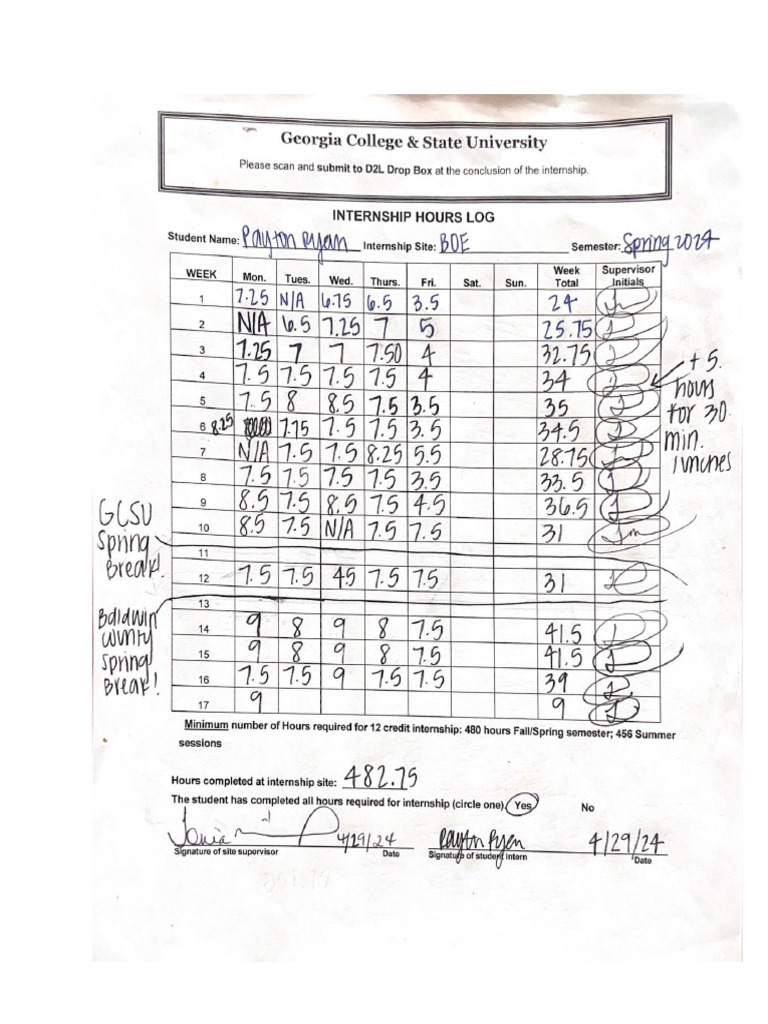 Georgia College & State University
Please scan and submit to D2L Drop Box at the conclusion of the internship.
INTERNSHIP HOURS LOG
Student Name: Payton Ryan Internship Site: BOE Semester: Spring 2024
WEEK Mon. Tues. Wed. Thurs. Fri. Sat. Sun. Week Total Supervisor Initials
1 7.25 N/A 6.75 6.5 3.5 24
2 N/A 6.5 7.25 7 5 25.75
3 7.25 7 7 7.50 4 32.75
4 7.5 7.5 7.5 7.5 4 34
+.5 hours for 30 min. lunches
5 7.5 8 8.5 7.5 3.5 35
6 8.25 7.75 7.5 7.5 3.5 34.5
7 N/A 7.5 7.5 8.25 5.5 28.75
8 7.5 7.5 7.5 7.5 3.5 33.5
9 8.5 7.5 8.5 7.5 4.5 36.5
10 8.5 7.5 N/A 7.5 7.5 31
GCSU Spring Break!
11
12 7.5 7.5 45 7.5 7.5 31
13
Baldwin County Spring Break!
14 9 8 9 8 7.5 41.5
15 9 8 9 8 7.5 41.5
16 7.5 7.5 9 7.5 7.5 39
17 9 9
Minimum number of Hours required for 12 credit internship: 480 hours Fall/Spring semester; 456 Summer
sessions
Hours completed at internship site: 482.75
The student has completed all hours required for internship (circle one) Yes No
4/29/24 Payton Ryan 4/29/24
Signature of site supervisor Date Signature of student intern Date